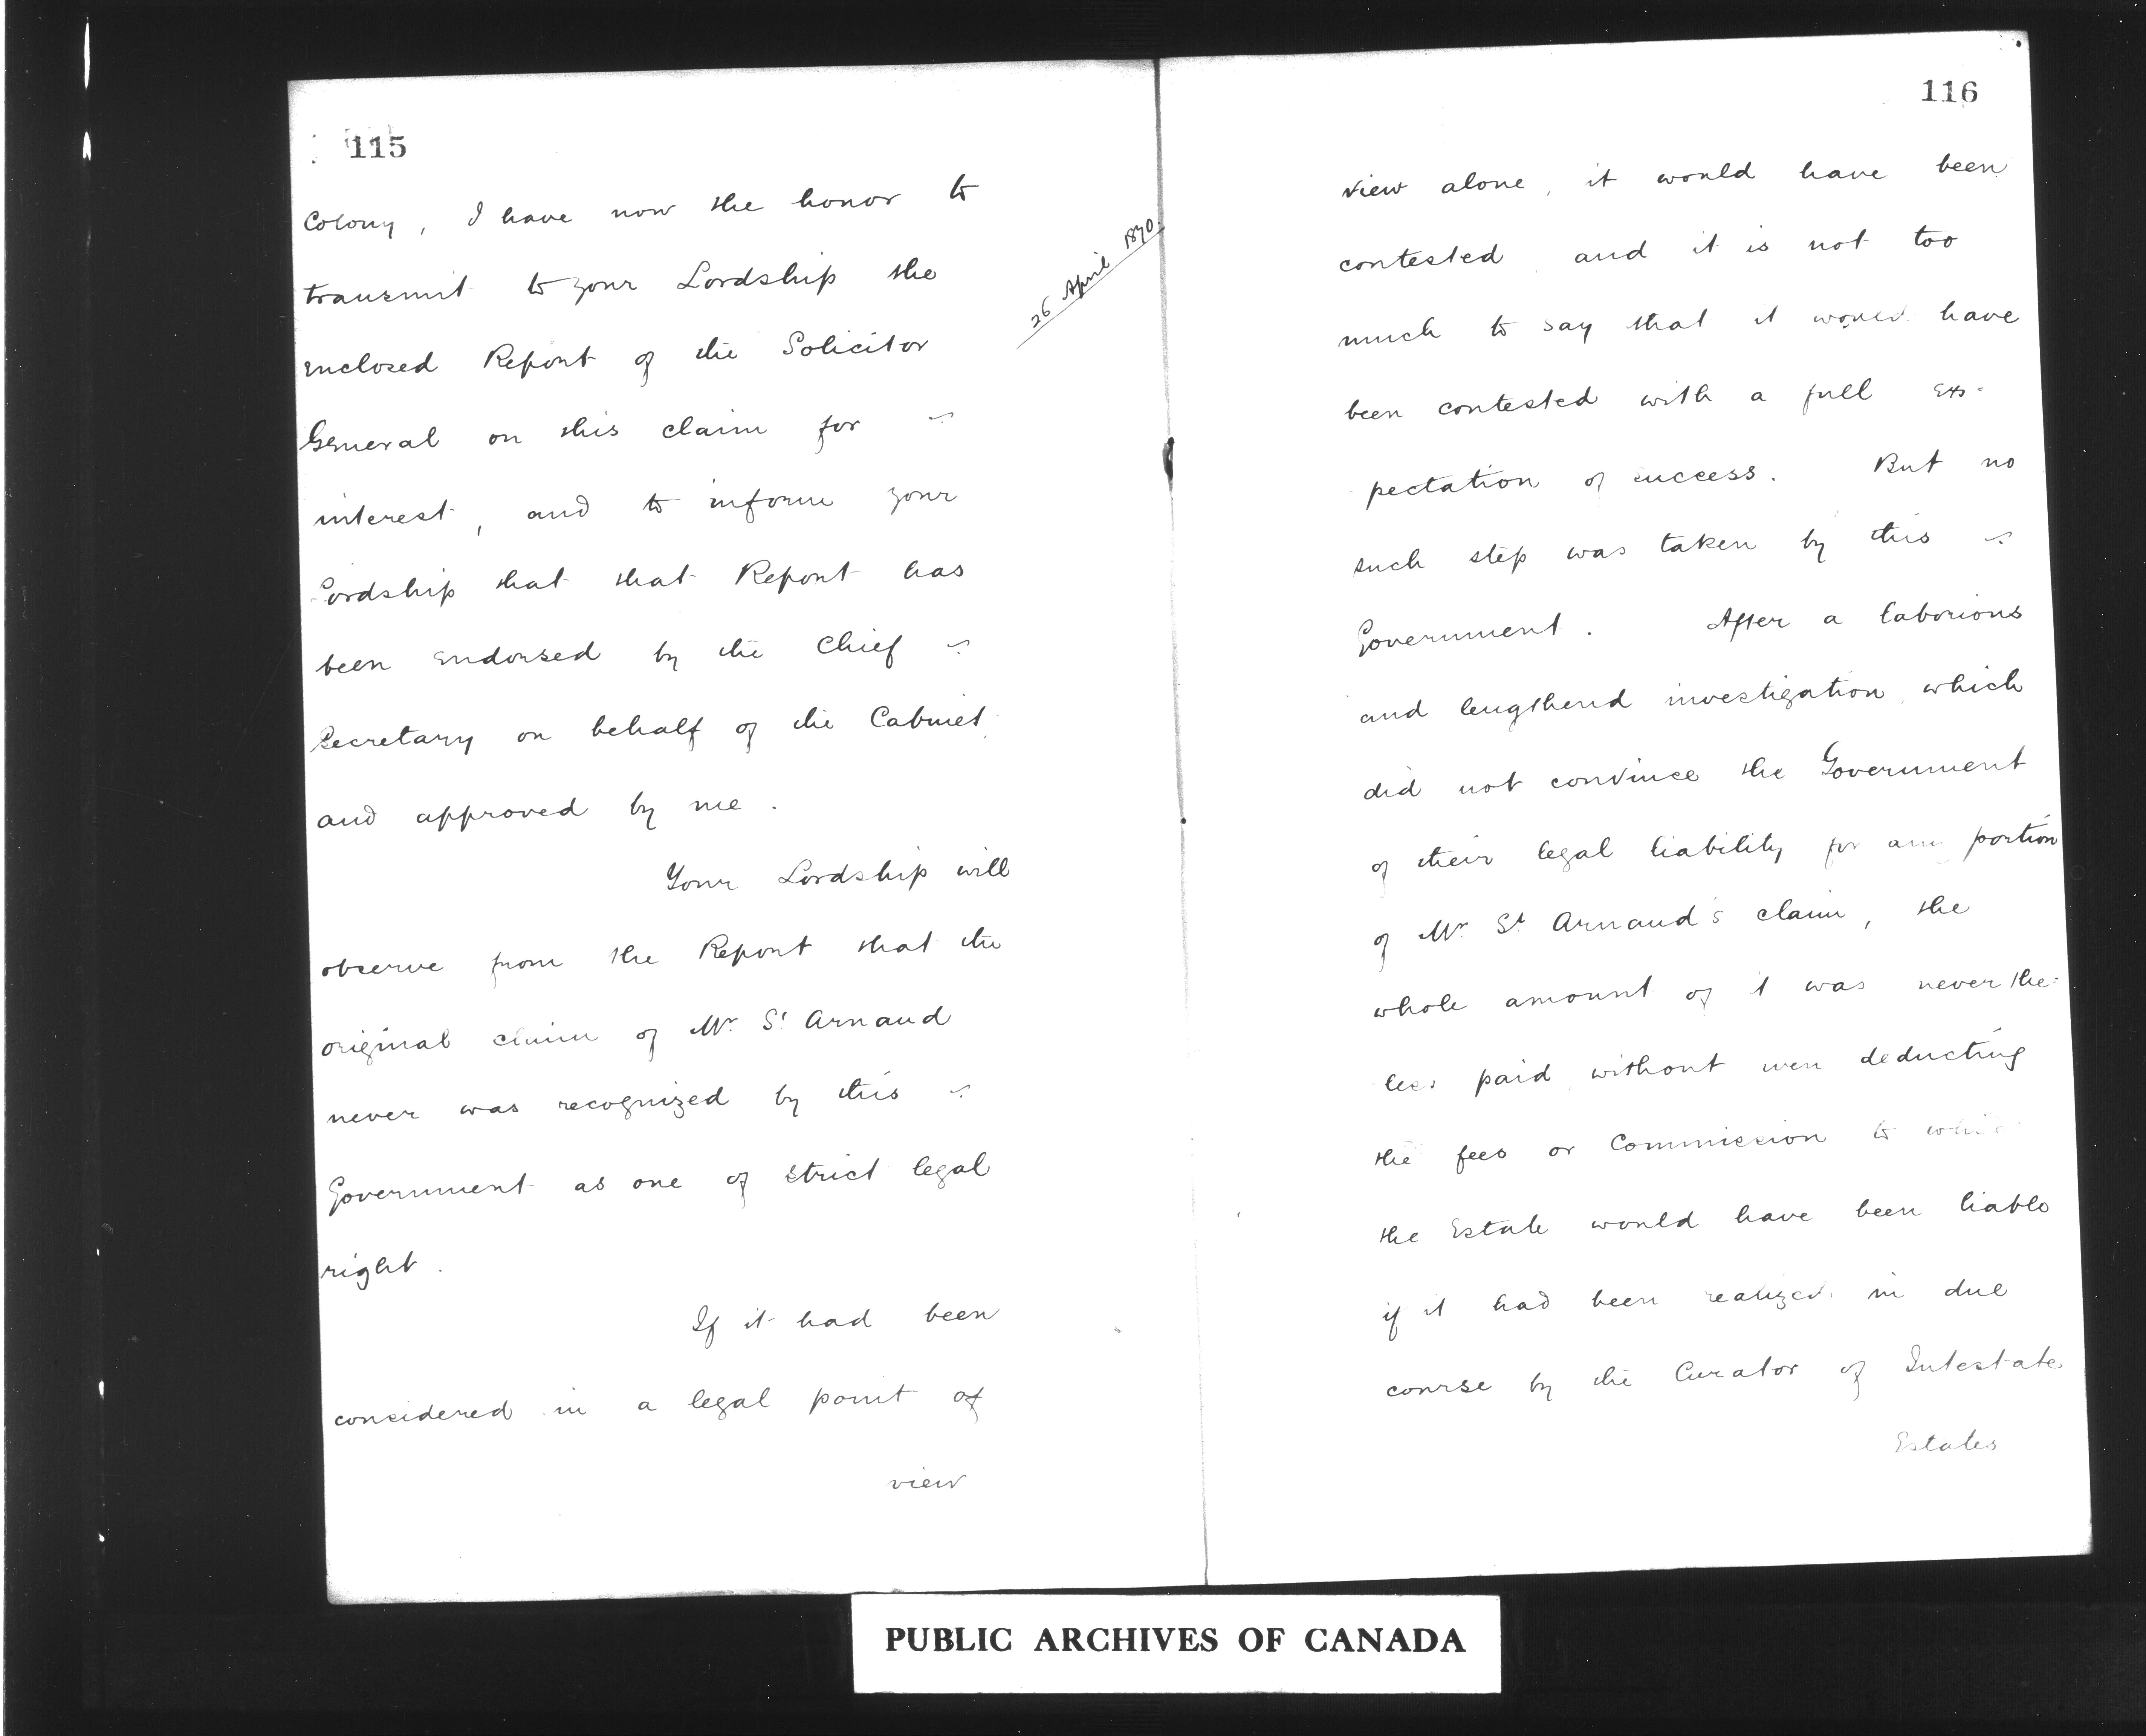 115
Colony, I have now the honor to
transmit to your Lordship the
26 April 1870.
enclosed Report of the Solicitor
General on this claim for ~
interest, and to inform your
Lordship that that Report has
been endorsed by the Chief ~
Secretary on behalf of the Cabinet,
and approved by me.
Your Lordship will
observe from the Report that the
original claim of Mr. St Arnaud
never was recognized by this ~
Government as one of strict legal
right.
If it had been
considered in a legal point of
view
116
view alone, it would have been
contested and it is not too
much to say that it would have
been contested with a full ex-
pectation of success. But no
such step was taken by this ~
Government. After a laborious
and lengthend investigation, which
did not convince the Government
of their legal liability for any portion
of Mr. St Arnaud's claim, the
whole amount of it was never the=
less paid, without even deducting
the fees or Commission to which
the Estate would have been liable
if it had been realized in due
course by the Curator of Intestate
Estates
PUBLIC ARCHIVES OF CANADA